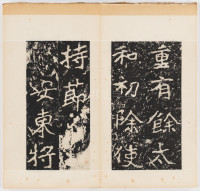 重有餘太
和初除使
持節
安東將